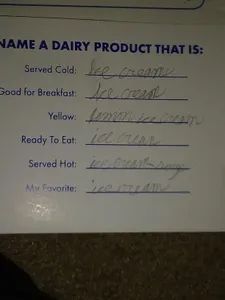 NAME A DAIRY PRODUCT THAT IS:
Served Cold: Ice cream
Good for Breakfast: Ice cream
Yellow: lemon ice cream
Ready To Eat: ice cream
Served Hot: ice cream
My Favorite: ice cream